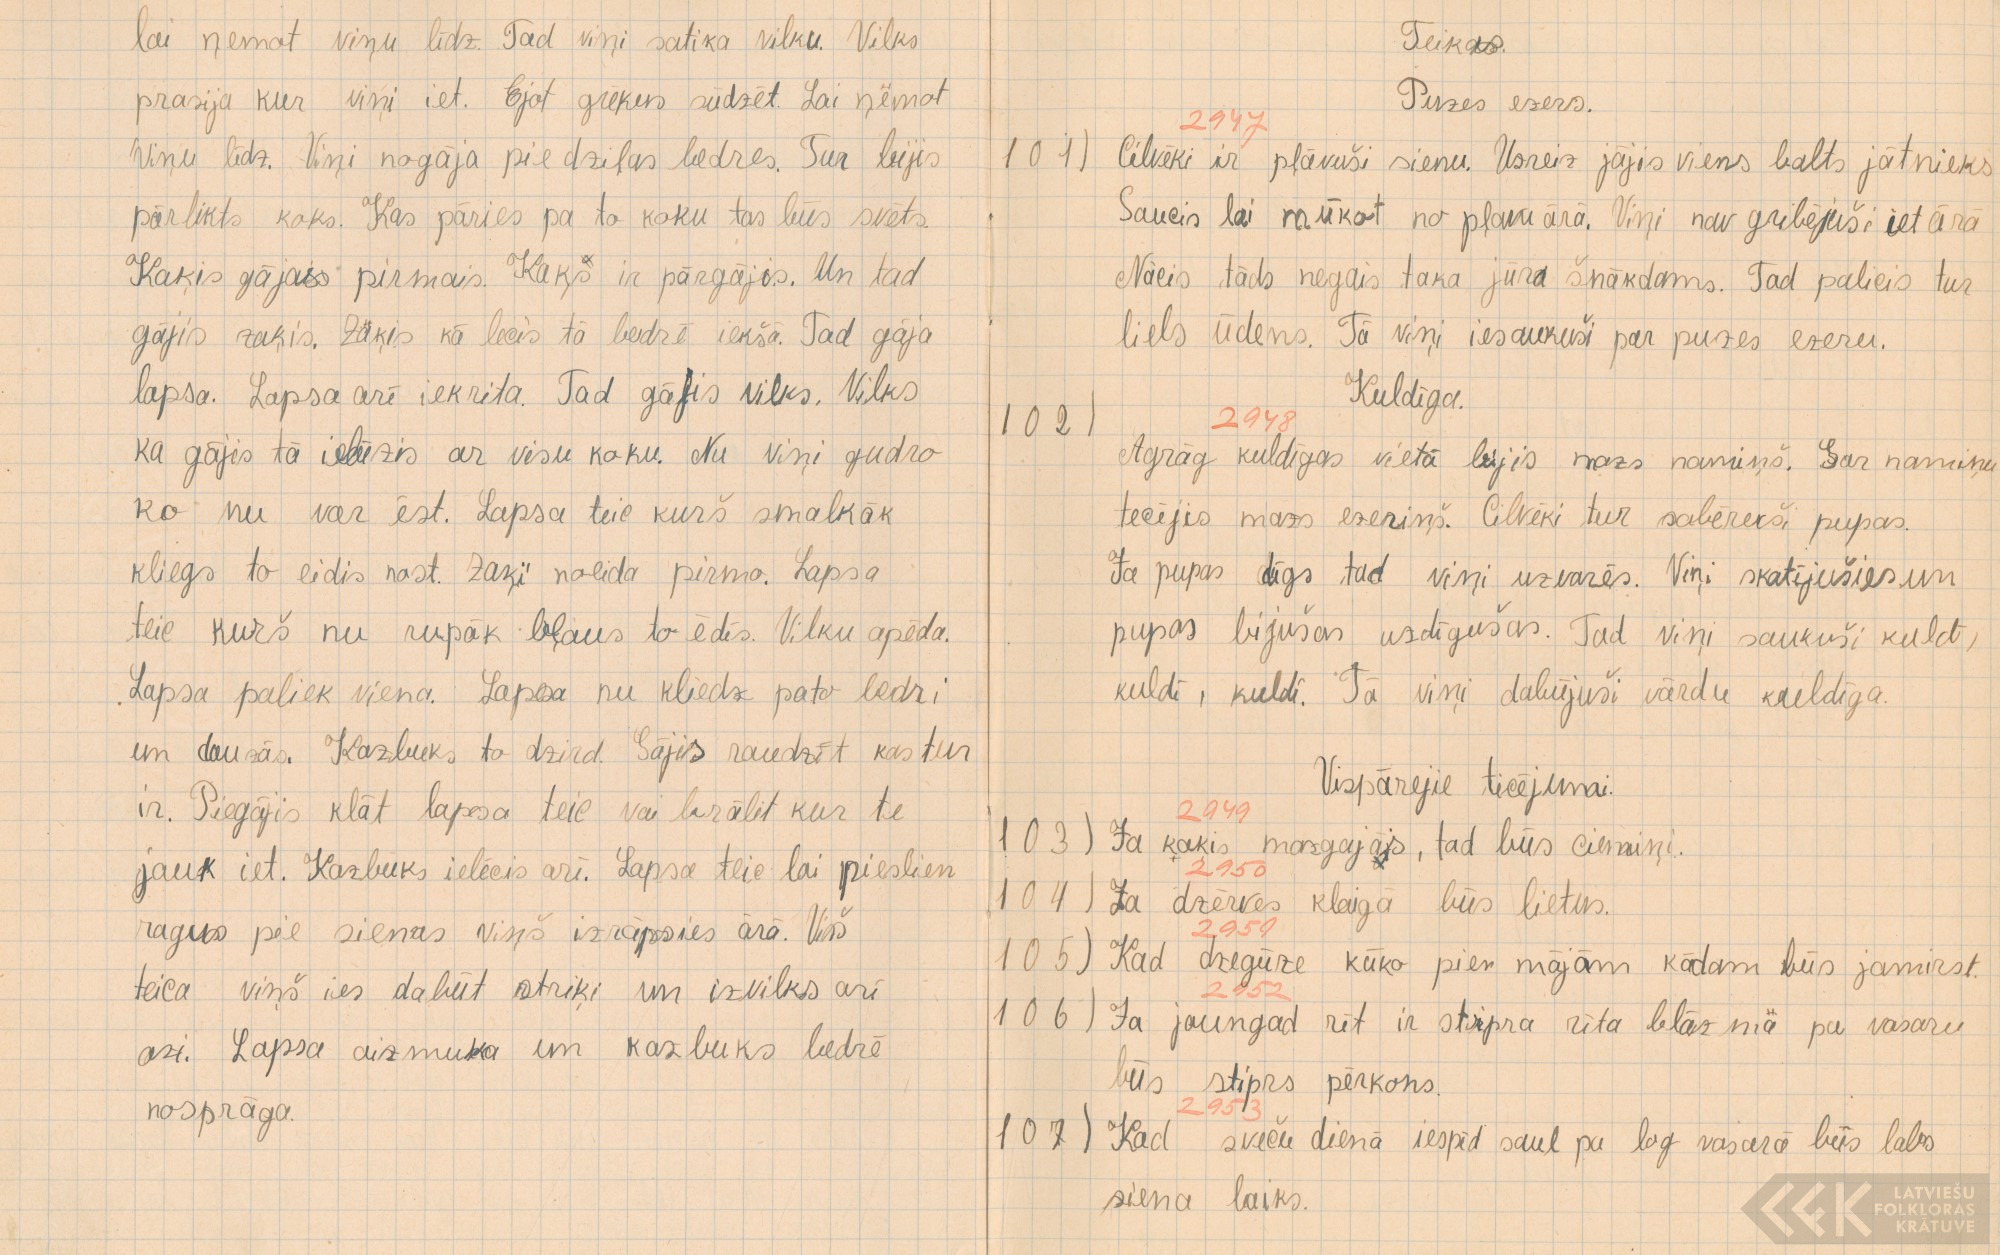 lai ņemot viņu līdz. Tad viņi satika vilku. Vilks
prasija kur viņi iet. Ejot grēkus sūdzēt. Lai ņēmot
Viņu līdz. Viņi nogāja pie dziļas bedres. Tur bijis
pārlikts koks. Kas pāries pa to koku tas būs svēts.
Kaķis gājais pirmais. Kaķš ir pārgājis. Un tad
gājis zaķis. Zaķis kā lēcis tā bedrē iekšā. Tad gāja
lapsa. Lapsa arī iekrita. Tad gājis vilks. Vilks
kā gājis tā ielūzis ar visu koku. Nu viņi gudro
ko nu var ēst. Lapsa teic kurš smalkāk
kliegs to eidis nost. Zaķi noeida pirmo. Lapsa
teic kurš nu rupāk bļaus to ēdīs. Vilku apēda.
Lapsa paliek viena. Lapsa nu kliedz pa to bedri
un dauzās. Kazbuks to dzird. Gājis raudzīt kas tur
ir. Piegājis klāt lapsa teic vai brālit kur te
jauk iet. Kazbuks ielēcis arī. Lapsa teic lai pieslien
ragus pie sienas viņš izrāpsies ārā. Viņš
teica viņš ies dabūt striķi un izvilks arī
azi. Lapsa aizmuka un kazbuks bedrē
nosprāga.
Teikas.
Puzes ezers.
2947
101) Cilvēki ir pļāvuši sienu. Uzreiz jājis viens balts jātnieks
Saucis lai mūkot no pļavu ārā. Viņi nav gribējuši iet ārā
Nācis tāds negais taka jūra šņākdams. Tad palicis tur
liels ūdens. Tā viņi iesaukuši par puzes ezeru.
Kuldīga.
102) 2948
Agrāg kuldīgas vietā bijis mazs namiņš. Gar namiņu
tecējis mazs ezeriņš. Cilvēki tur sabērekši pupas.
Ja pupas dīgs tad viņi uzvarēs. Viņi skatījušies un
pupas bijušas uzdīgušas. Tad viņi saukuši kuldī,
kuldī, kuldī. Tā viņi dabūjuši vārdu kuldīga.
Vispārejie ticējumai.
2949
103) Ja kaķis mazgajājs, tad būs ciemiņi.
2950
104) Ja dzērves klaigā būs lietus.
2951
105) Kad dzegūze kūko pier mājām kādam būs jamirst.
2952
106) Ja jaungad rīt ir stipra rīta blāzmā pa vasaru
būs stiprs pērkons.
2953
107) Kad sveču dienā iespīd saul pa log vasarā būs labs
siena laiks.
LATVIEŠU
FOLKLORAS
KRĀTUVE